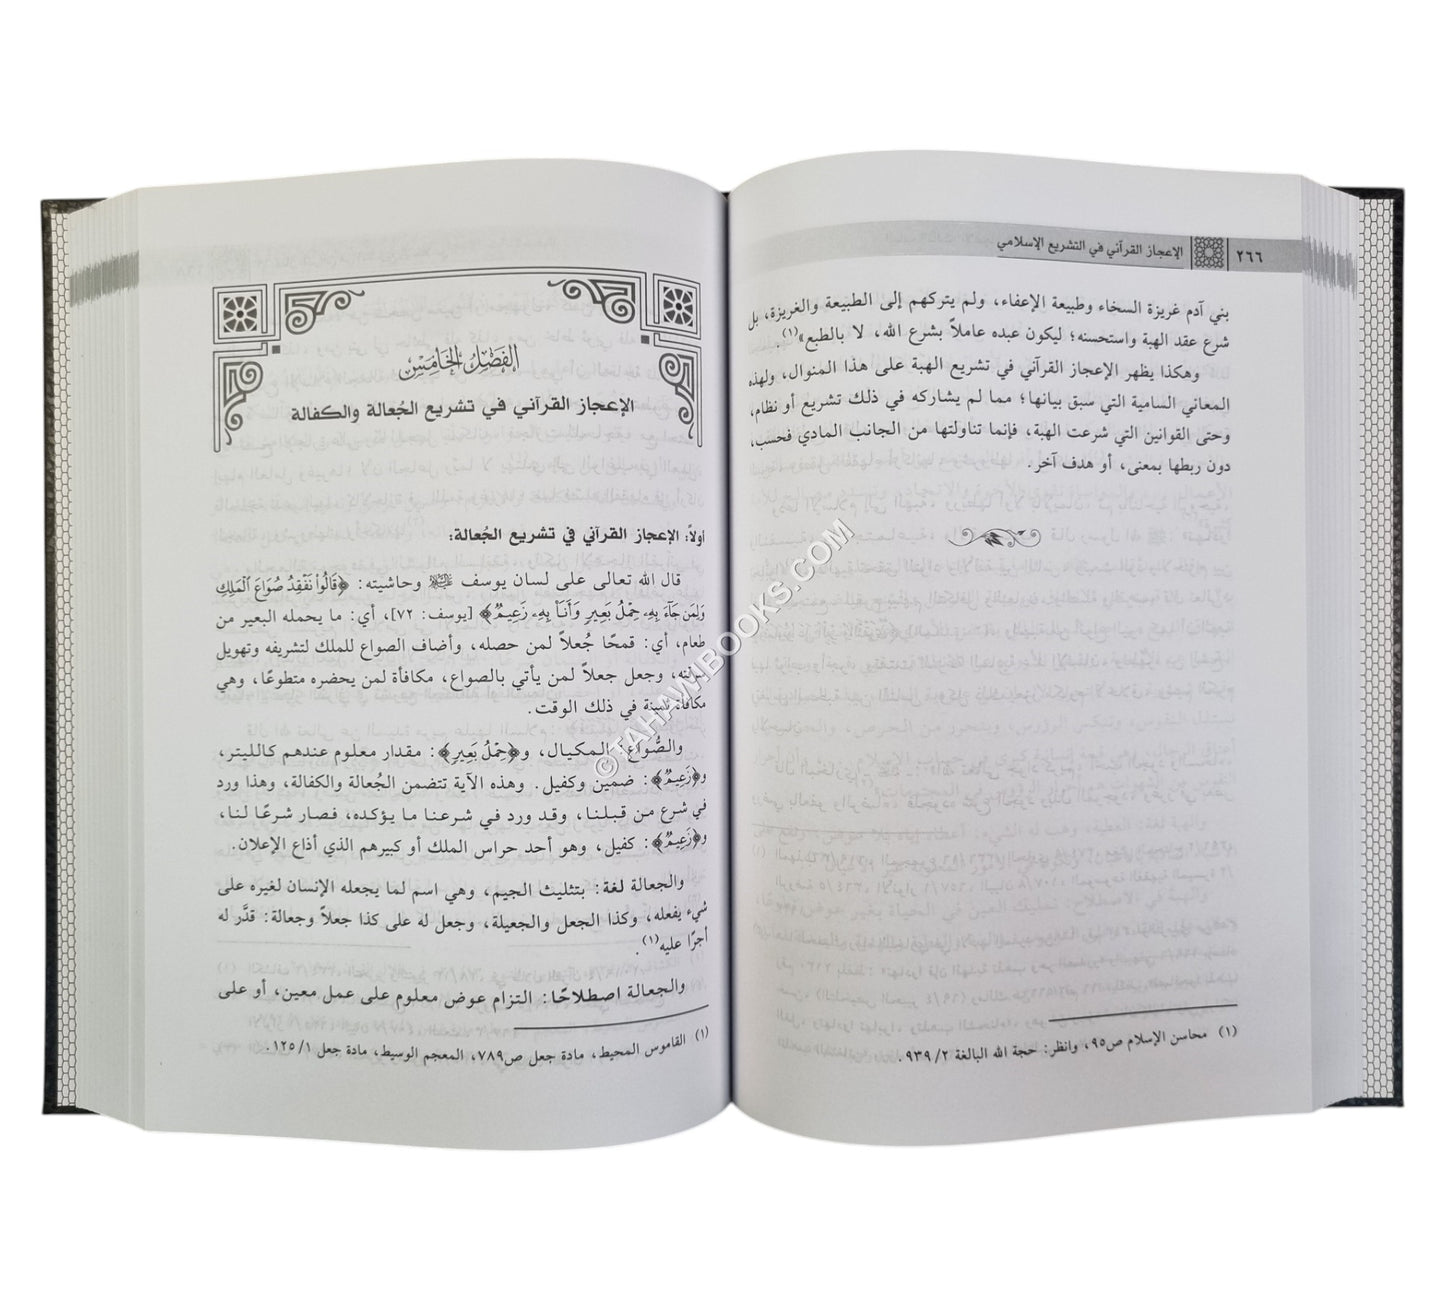 ٢٦٦ الإعجاز القرآني في التشريع الإسلامي
بني آدم غريزة السخاء وطبيعة الإعفاء، ولم يتركهم إلى الطبيعة والغريزة، بل
شرع عقد الهبة واستحسنه؛ ليكون عبده عاملاً بشرع الله، لا بالطبع»(١).
وهكذا يظهر الإعجاز القرآني في تشريع الهبة على هذا المنوال، ولهذه
المعاني السامية التي سبق بيانها؛ مما لم يشاركه في ذلك تشريع أو نظام،
وحتى القوانين التي شرعت الهبة، فإنما تناولتها من الجانب المادي فحسب،
دون ربطها بمعنى، أو هدف آخر.
(١) محاسن الإسلام ص٩٥، وانظر: حجة الله البالغة ٢/ ٩٣٩.
الفصل الخامس
الإعجاز القرآني في تشريع الجُعالة والكفالة
أولاً: الإعجاز القرآني في تشريع الجُعالة:
قال الله تعالى على لسان يوسف ﵇ وحاشيته: ﴿قَالُوا۟ نَفْقِدُ صُوَاعَ ٱلْمَلِكِ
وَلِمَن جَآءَ بِهِۦ حِمْلُ بَعِيرٍ وَأَنَا۠ بِهِۦ زَعِيمٌ﴾ [يوسف: ٧٢]، أي: ما يحمله البعير من
طعام، أي: قمحًا جُعلاً لمن حصله، وأضاف الصواع للملك لتشريفه وتهويل
سرقته، وجعل جعلاً لمن يأتي بالصواع، مكافأة لمن يحضره متطوعًا، وهي
مكافأة ثمينة في ذلك الوقت.
والصُّواع: المكيال، و﴿حِمْلُ بَعِيرٍ﴾: مقدار معلوم عندهم كالليتر،
و﴿زَعِيمٌ﴾: ضمين وكفيل. وهذه الآية تتضمن الجُعالة والكفالة، وهذا ورد
في شرع من قبلنا، وقد ورد في شرعنا ما يؤكده، فصار شرعًا لنا،
و﴿زَعِيمٌ﴾: كفيل، وهو أحد حراس الملك أو كبيرهم الذي أذاع الإعلان.
والجعالة لغة: بتثليث الجيم، وهي اسم لما يجعله الإنسان لغيره على
شيء يفعله، وكذا الجعل والجعيلة، وجعل له على كذا جعلاً وجعالة: قدَّر له
أجرًا عليه(١).
والجعالة اصطلاحًا: التزام عوض معلوم على عمل معين، أو على
(١) القاموس المحيط، مادة جعل ص٧٨٩، المعجم الوسيط، مادة جعل ١/ ١٢٥.
©TAHAWIBOOKS.COM